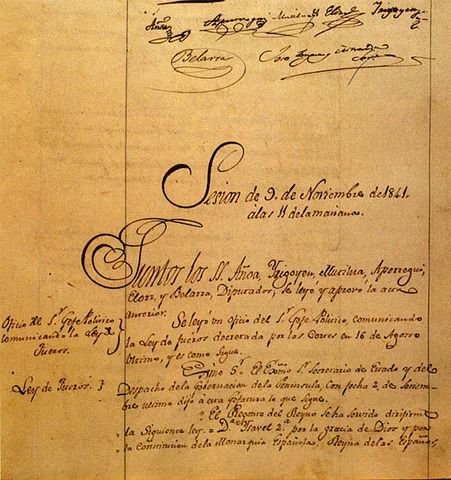 Añoa
Irigoyen
Belarra
Sesion de 9. de Noviembre de 1841.
a las 11 de la mañana.
Juntos los SS. Añoa, Irigoyen,
Elorz, y Belarra, Diputados, se leyó y aprovó la acta
anterior.
Oficio del Sr. Gefe Politico
comunicando la Ley de
Fueros.
Se leyó un oficio del Sr. Gefe Politico, comunicando
la Ley de fueros decretada por las Cortes en 16 de Agosto
ultimo, y es como sigue.
Ley de Fueros.
Exmo Sr. El Exmo Sr. Secretario de Estado y del
Despacho de la Gobernacion de la Peninsula con fecha 2 de
ultimo dijo á esta gefatura lo que sigue.
"El Regente del Reyno se ha servido dirigirme
"la siguiente ley. = Dª. Isavel 2ª. por la gracia de Dios y por
"la Constitucion de la Monarquia Española, Reyna de las Españas,